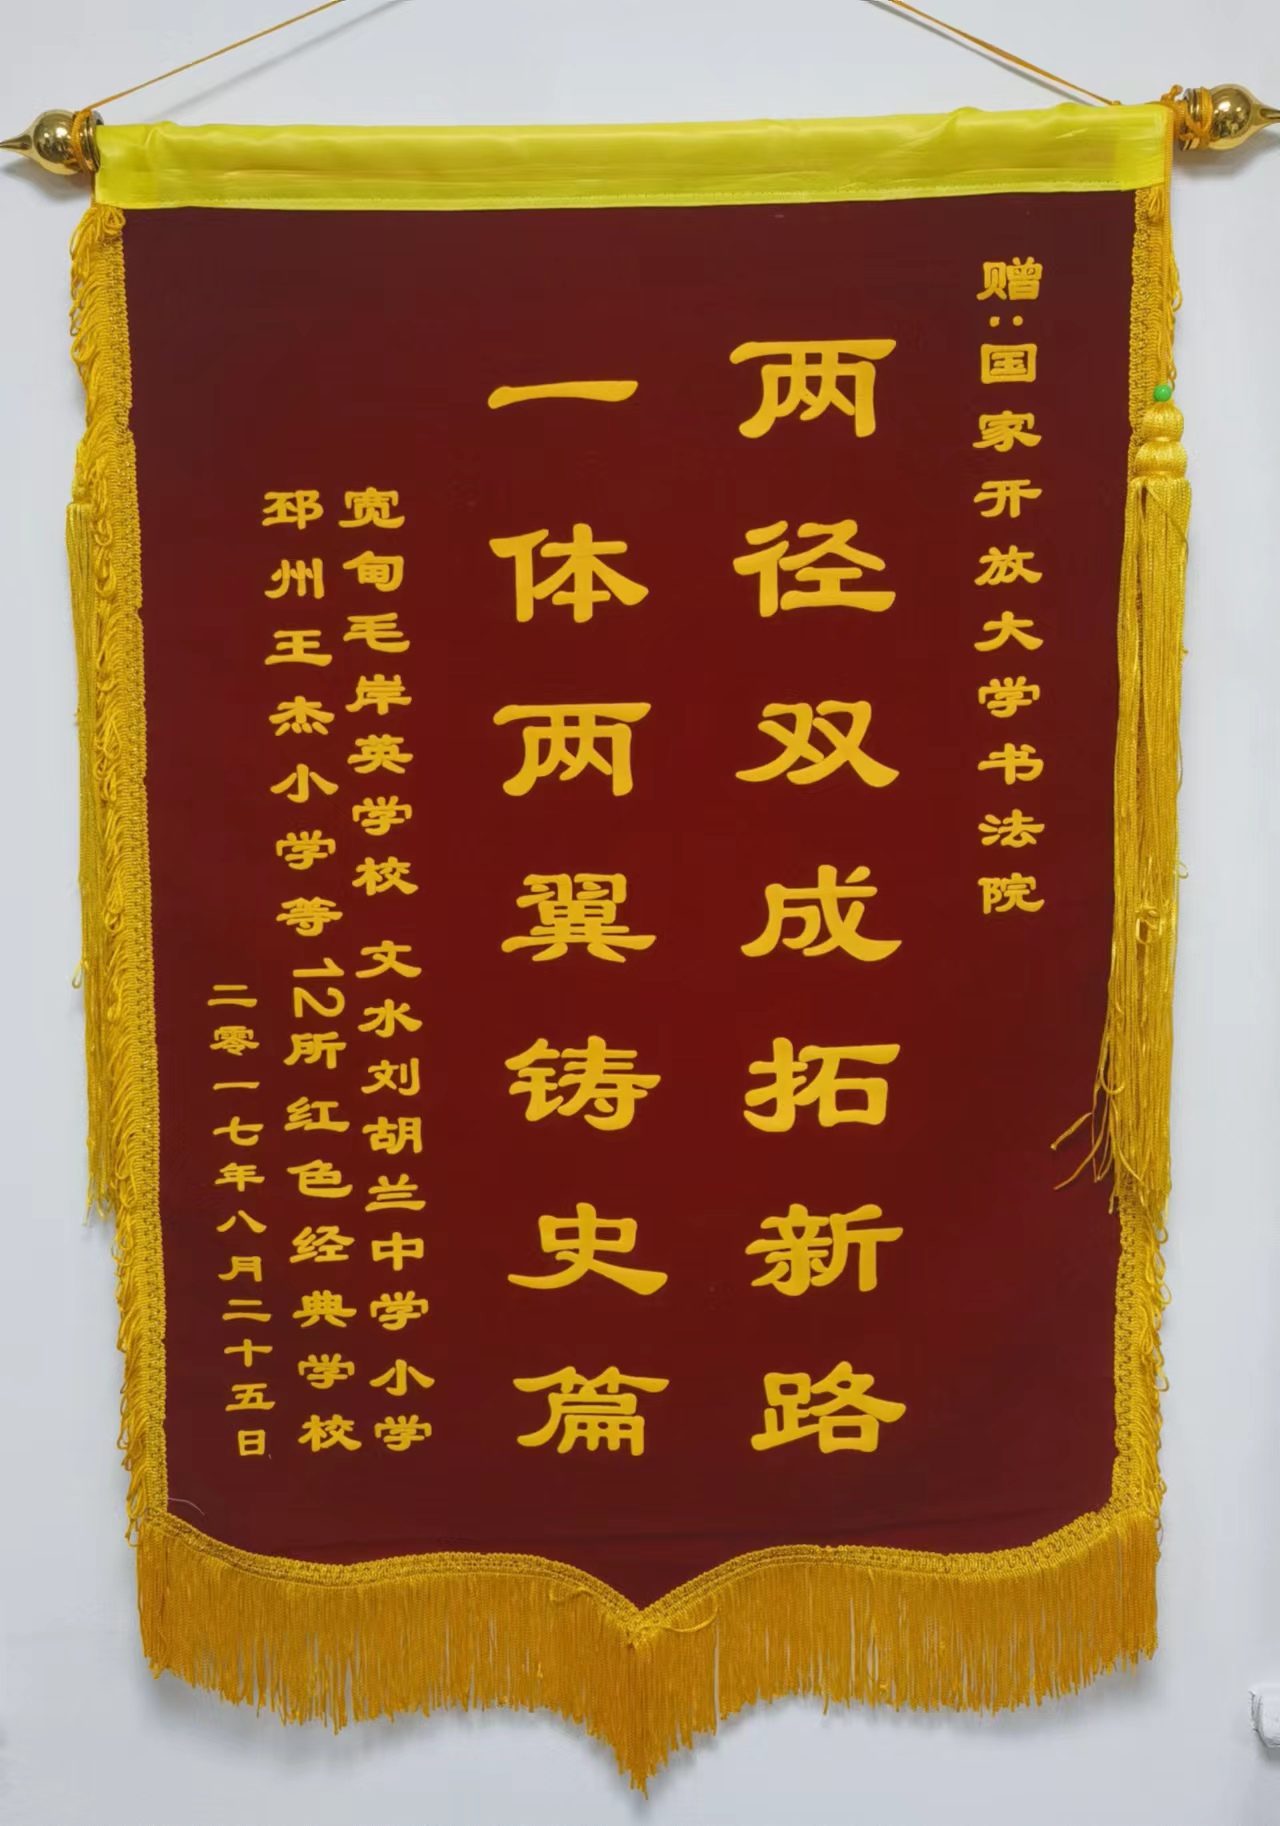 赠:国家开放大学书法院
两径双成拓新路
一体两翼铸史篇
宽甸毛岸英学校 文水刘胡兰中学小学
邳州王杰小学等12所红色经典学校
二零一七年八月二十五日